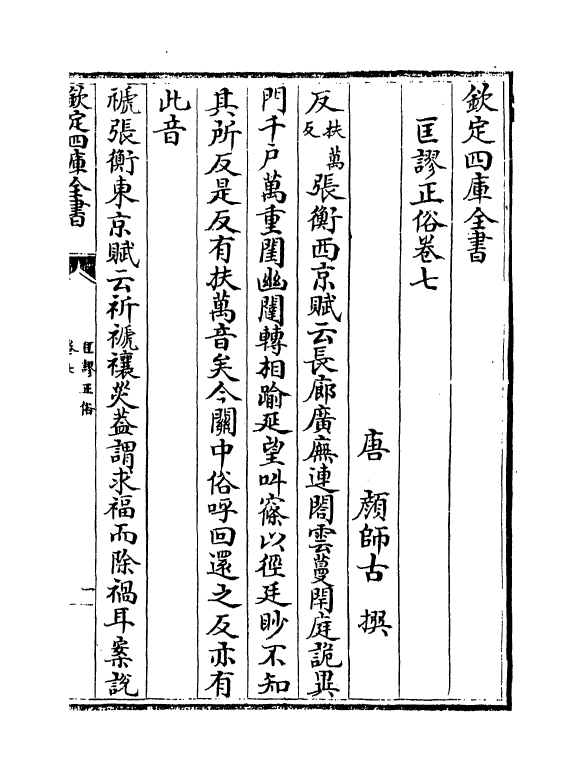 欽定四庫全書
匡謬正俗卷七
唐 顔師古 撰
反扶萬反張衡西京賦云長廊廣廡連閣雲蔓閈庭詭異
門千户萬重閨幽闥轉相踰延望叫窱以徑廷眇不知
其所反是反有扶萬音矣今關中俗呼回還之反亦有
此音
禠張衡東京賦云祈禠禳災葢謂求福而除禍耳案説
欽定四庫全書
匡謬正俗
卷七
一